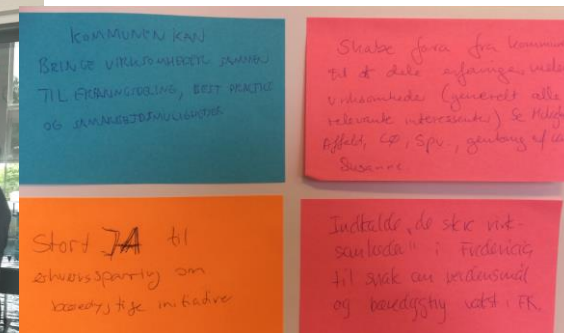 KOMMUNEN KAN
BRINGE VIRKSOMHEDER SAMMEN
TIL ERFARINGSDELING, BEST PRACTICE
OG SAMARBEJDSMULIGHEDER
Skabe fora fra kommune
til at dele erfaringer mellem
virksomheder (generelt alle
relevante interessenter) Se
Affald, CØ, Spv., genbrug
Susanne.
Stort JA til
erhvervssparring om
bæredygtige initiativer
Indkalde "de store virk-
somheder" i Fredericia
til snak om verdensmål
og bæredygtig vækst i FR.